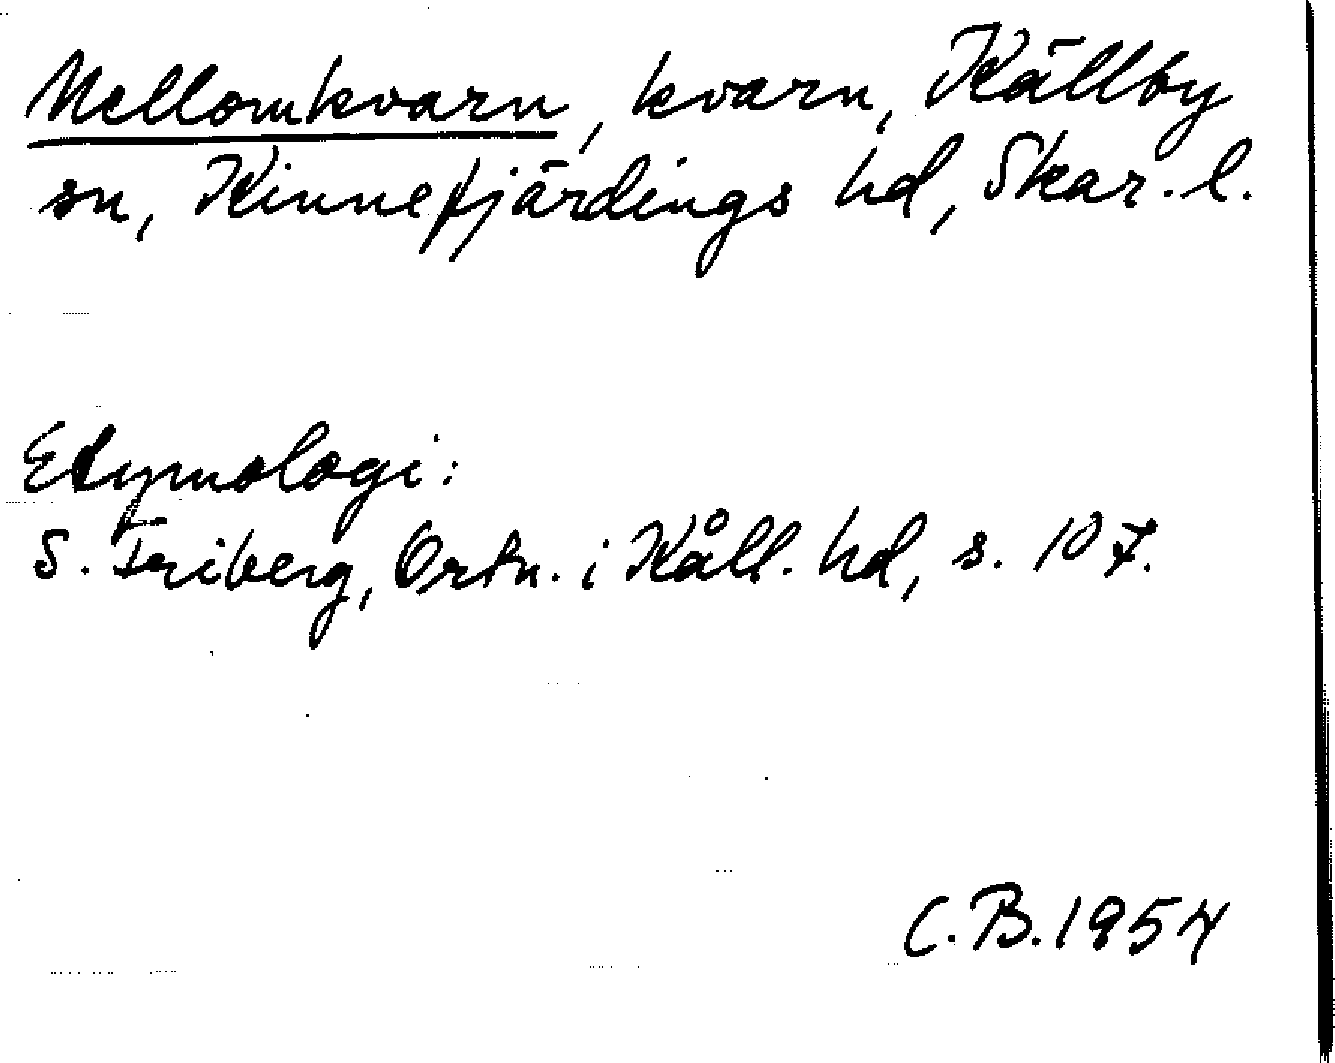 Mellomkvarn, kvarn, Källby
sn, Kinnefjärdings hd, Skar. l.
Etymologi:
S. Friberg, Ortn. i Kåll. hd, s. 107.
C.B. 1954